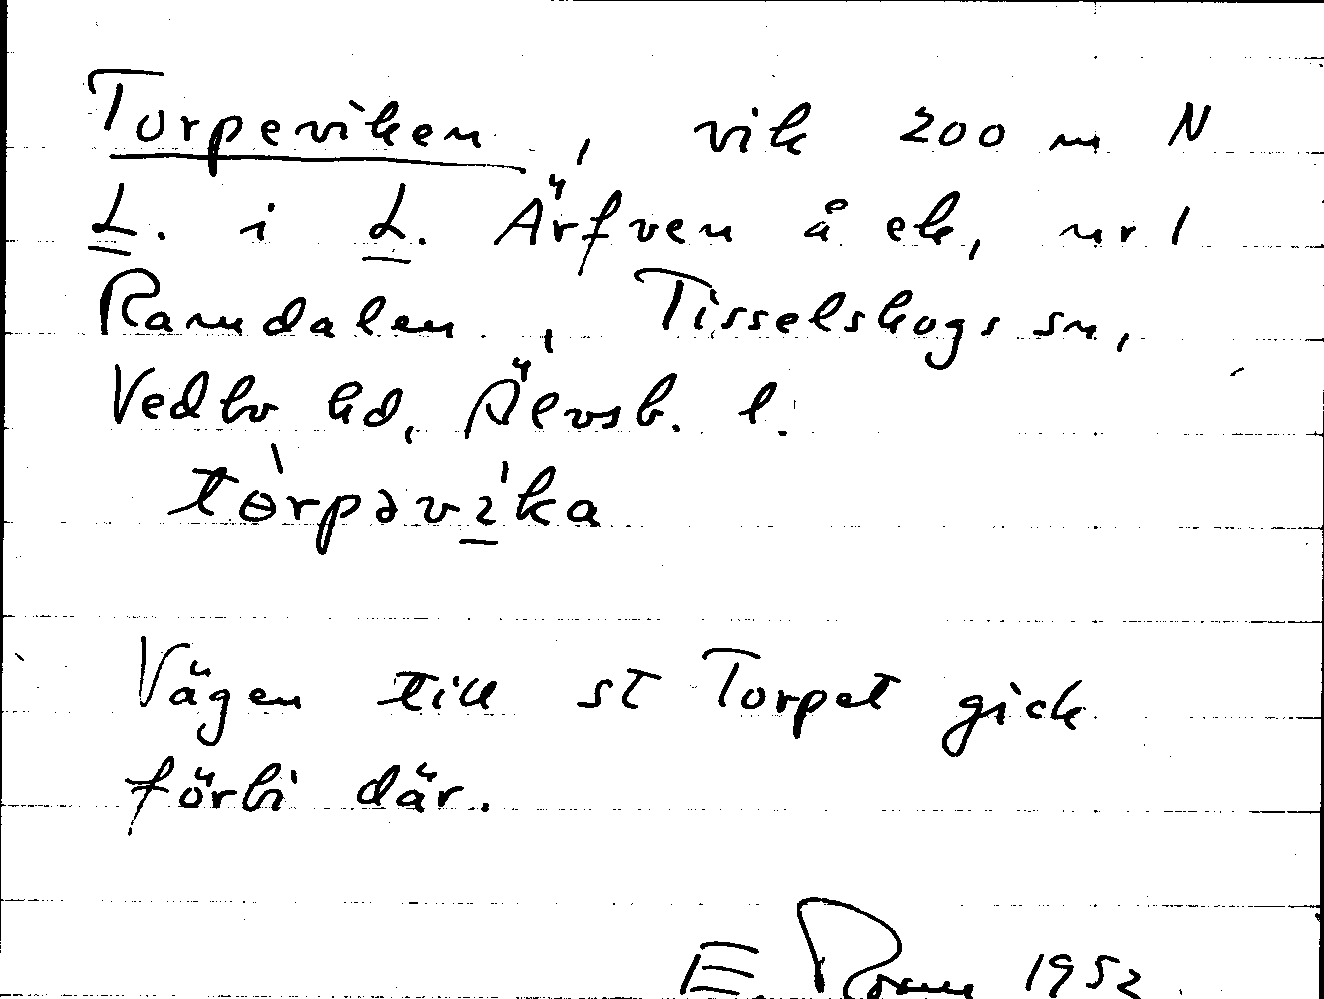 Torpeviken, vik 200 m N
L. i L. Ärfven å ek, nr 1
Ramdalen, Tisselskogs sn,
Vedbo hd, Älvsb. l.
tɵ̀rpəvi̱̍ka
Vägen till st Torpet gick
förbi där.
E. 1952